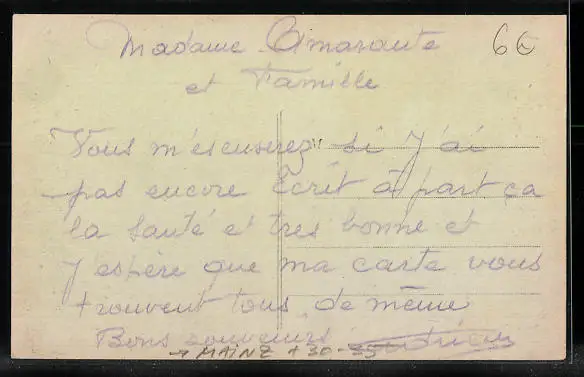 Madame Amarante 6€
et Famille
Vous m'escuserez si j'ai
pas encore Écrit à part ça
la santé et tres bonne et
j'espère que ma carte vous
trouvent tous de même
Bons souvenirs
→ MAINZ + 30-